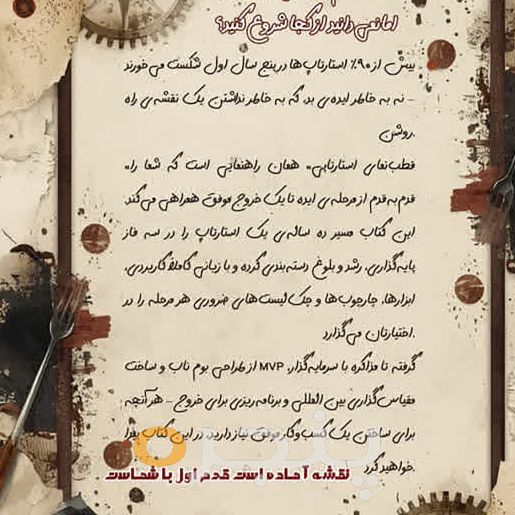 اما نمی دانید از کجا شروع کنید؟
بیش از ۹۰٪ استارتاپ ها در پنج سال اول شکست می خورند
– نه به خاطر ایده ی بد، که به خاطر نداشتن یک نقشه ی راه
روشن.
قطب نمای استارتاپی» همان راهنمایی است که شما را»
قدم به قدم از مرحله ی ایده تا یک خروج موفق همراهی می کند.
این کتاب مسیر ده ساله ی یک استارتاپ را در سه فاز
پایه گذاری، رشد و بلوغ دسته بندی کرده و با زبانی کاملاً کاربردی،
ابزارها، چارچوب ها و چک لیست های ضروری هر مرحله را در
اختیارتان می گذارد.
گرفته تا مذاکره با سرمایه گذار، MVP از طراحی بوم ناب و ساخت
مقیاس گذاری بین المللی و برنامه ریزی برای خروج – هر آنچه
برای ساختن یک کسب وکار موفق نیاز دارید، در این کتاب پیدا
خواهید کرد.
نقشه آماده است قدم اول با شماست
پنیره